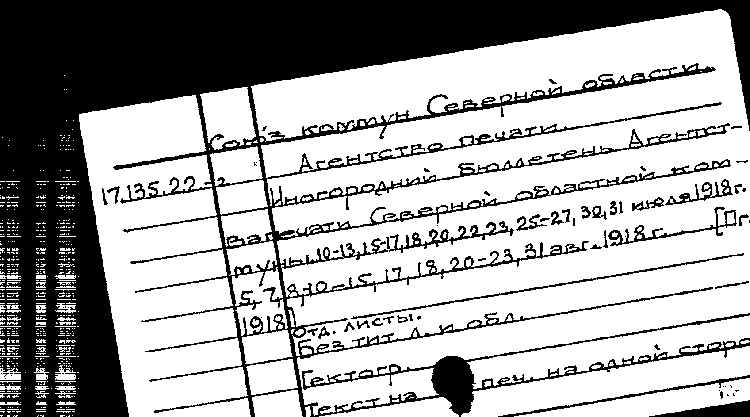 Союз коммун Северной области.
Агентство печати.
17.135.22-2
Иногородний бюллетень Агентст-
ва печати Северной областной ком-
муны. 10-13, 15-17, 18, 20, 22, 23, 25-27, 30, 31 июля 1918 г.
5, 7, 8, 10-15, 17, 18, 20-23, 31 авг. 1918 г. [Пг.
1918]
Отд. листы.
Без тит. л. и обл.
Гектогр.
Текст на печ. на одной сторо